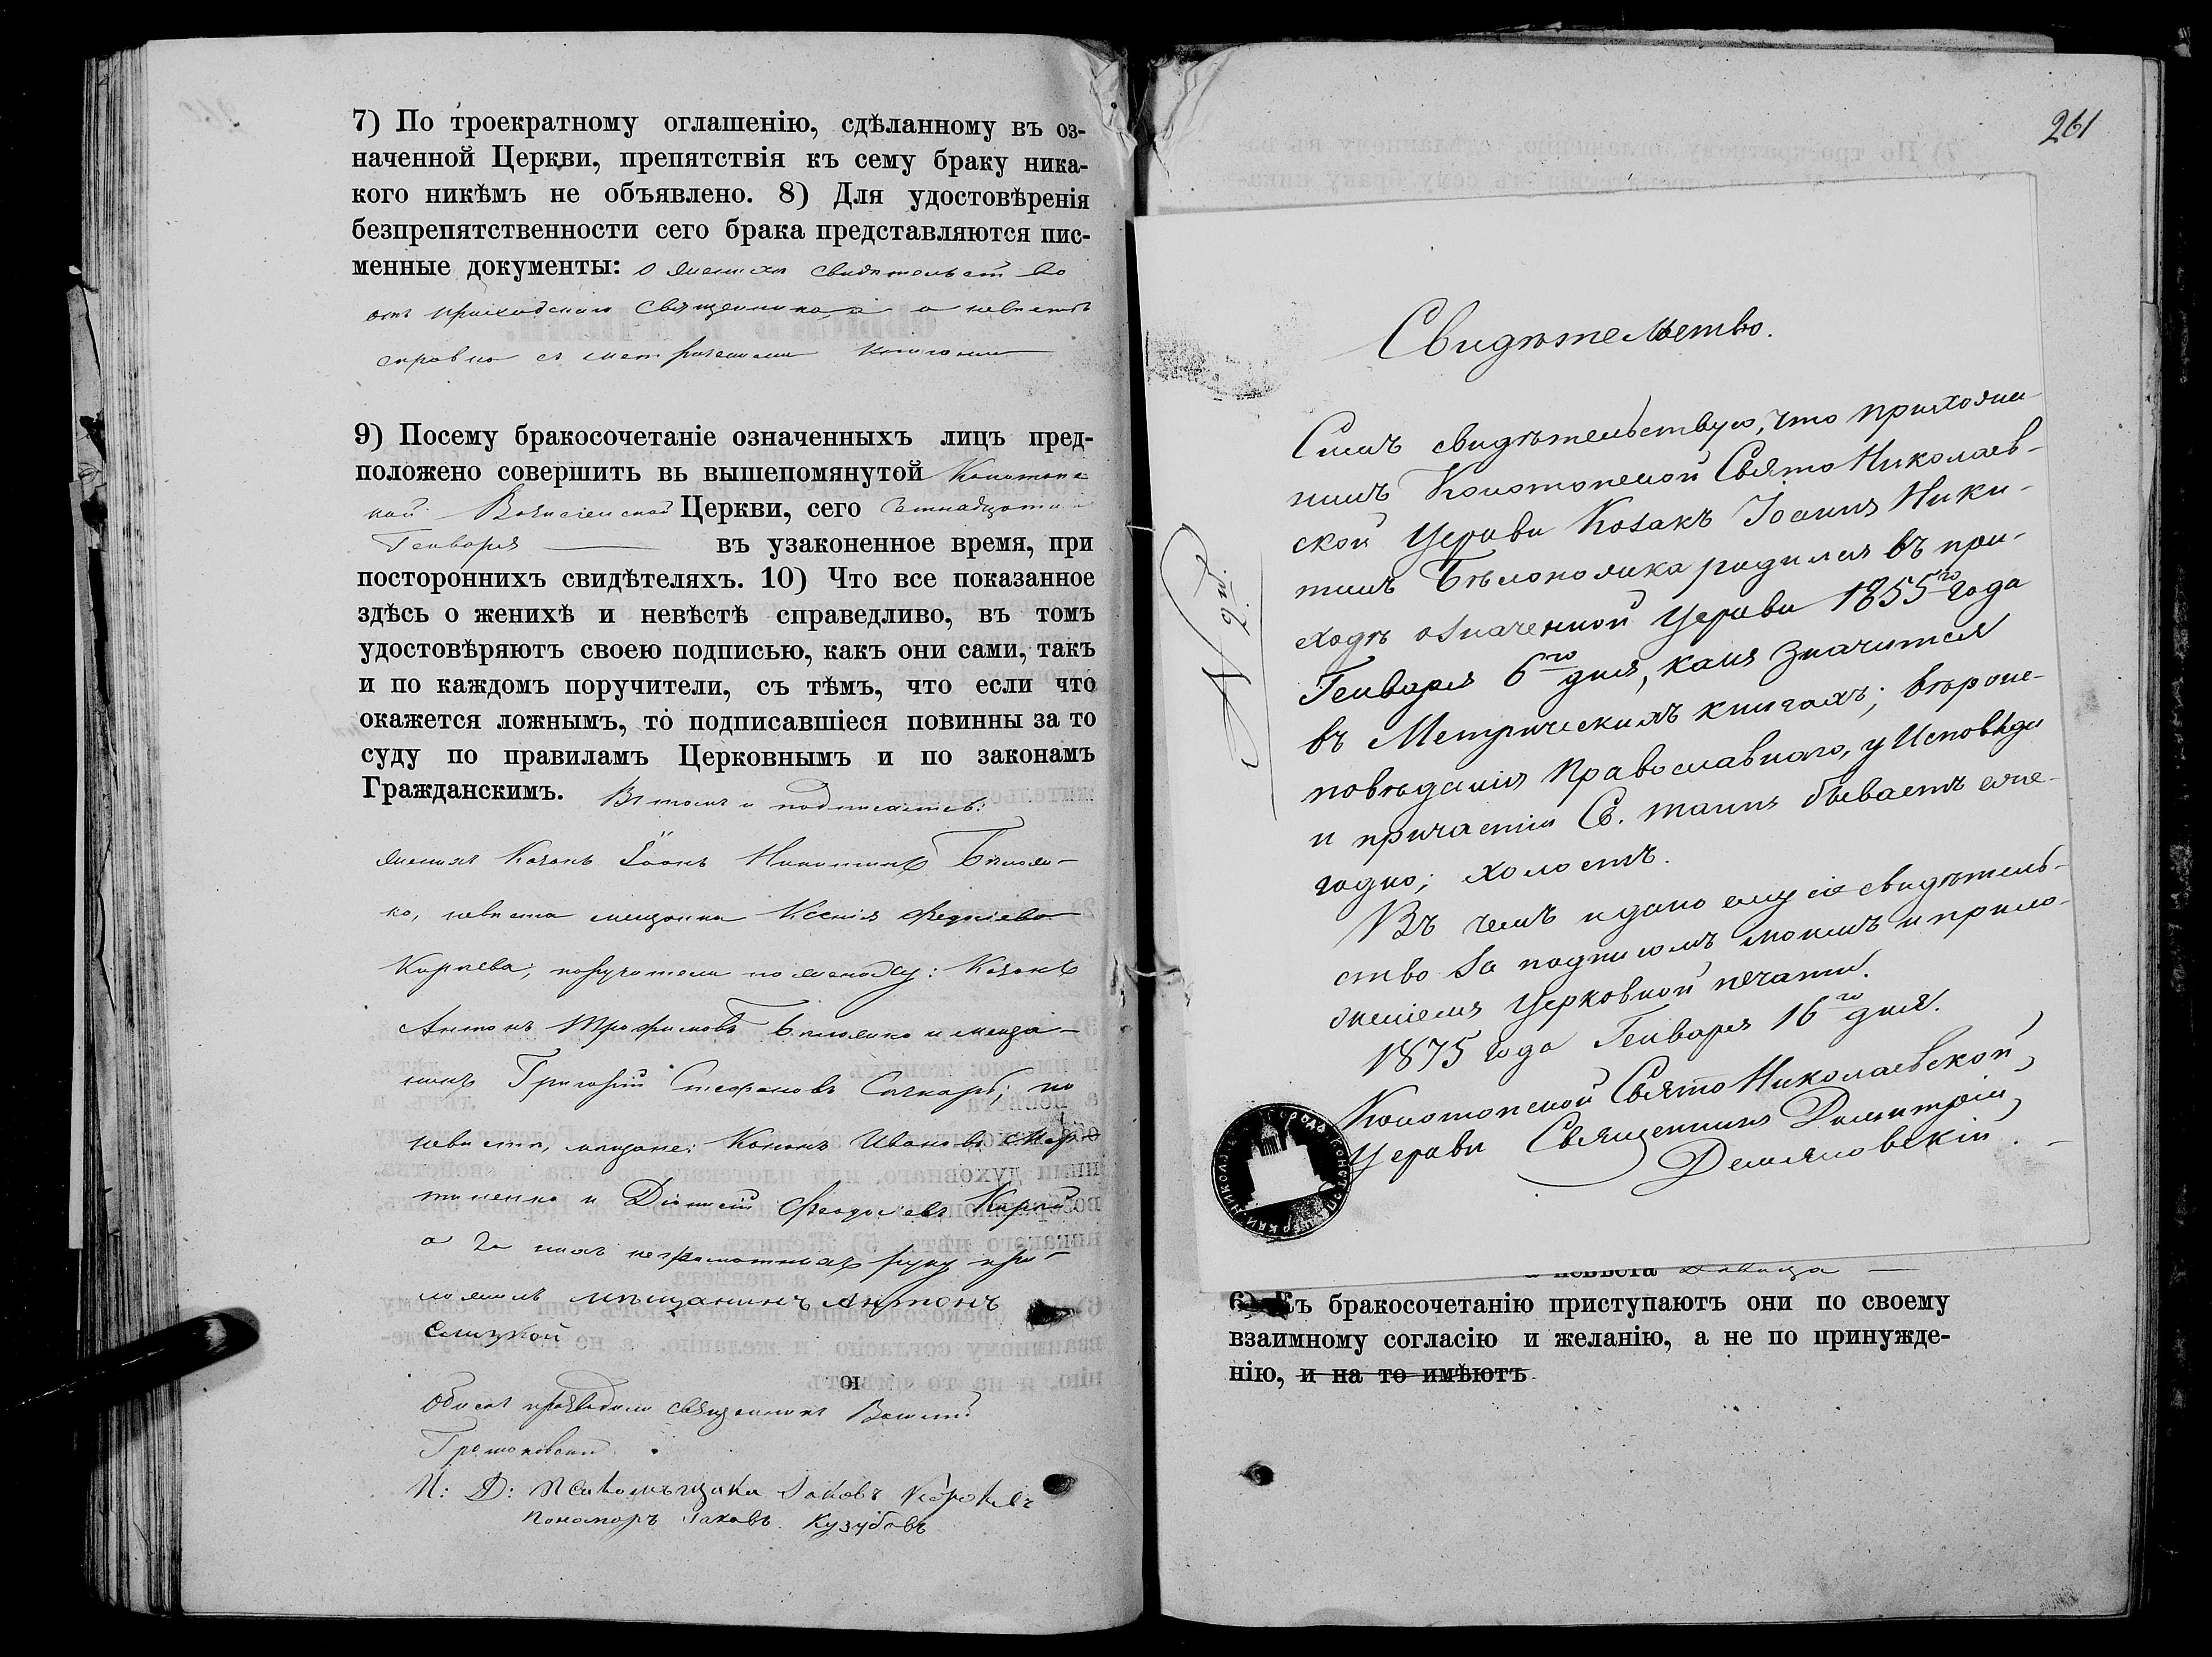 7) По троекратному оглашенію, сдѣланному въ оз-
наченной Церкви, препятствія къ сему браку ника-
кого никѣмъ не объявлено. 8) Для удостовѣренія
безпрепятственности сего брака представляются пис-
менные документы: о женихѣ свидѣтельство
отъ приходскаго священника, а о невѣстѣ
справка съ метрическими книгами
9) Посему бракосочетаніе означенныхъ лицъ пред-
положено совершить вь вышепомянутой Конотопс-
кой Вознесенской Церкви, сего
Генваря въ узаконенное время, при
постороннихъ свидѣтеляхъ. 10) Что все показанное
здѣсь о женихѣ и невѣстѣ справедливо, въ томъ
удостовѣряютъ своею подписью, какъ они сами, такъ
и по каждомъ поручители, съ тѣмъ, что если что
окажется ложнымъ, то подписавшіеся повинны за то
суду по правиламъ Церковнымъ и по законамъ
Гражданскимъ. Въ томъ и подписались:
женихъ Козакъ Іоанъ Никитинъ
невѣста мещанка Ксенія
поручители по женихѣ: Козакъ
Антонъ Трофимовъ и меща-
нинъ Григорій Стефановъ по
невѣстѣ, мещане: Кононъ Ивановъ
и Діонисій Феодосіевъ
а за нихъ неграмотныхъ руку при-
ложилъ мѣщанинъ Антонъ
Обыскъ производили священникъ Василій
И: Д: Псаломъщика Іаковъ
Пономарь Іаковъ Кузубовъ
261
Свидѣтельство.
Симъ свидѣтельствую, что прихожа-
нинъ Конотопской Свято Николаев-
ской Церкви Козакъ Іоаннъ Ники-
тинъ родился въ при-
ходѣ означенной Церкви 1855го года
Генваря 6го дня, какъ значится
въ Метрическихъ книгахъ; вѣроис-
повѣданія Православнаго, у Исповѣди
и причастія Св. таинъ бываетъ еже-
годно; холостъ.
Въ чемъ и дано ему сіе свидѣтель-
ство за подписомъ моимъ и прило-
женіемъ Церковной печати.
1875 года Генваря 16го дня.
Конотопской Свято Николаевской
Церкви Священникъ Димитрій
Демяновскій.
№ 9й.
невѣста дѣвица
6) Къ бракосочетанію приступаютъ они по своему
взаимному согласію и желанію, а не по принужде-
нію, и на то имѣютъ